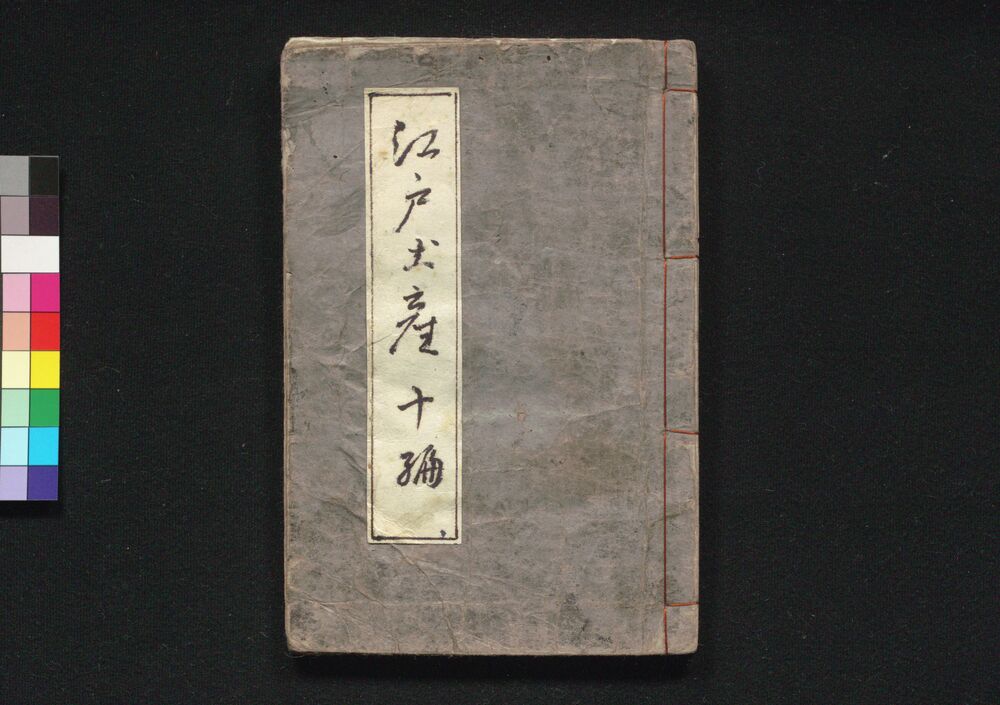 江戸土産十編